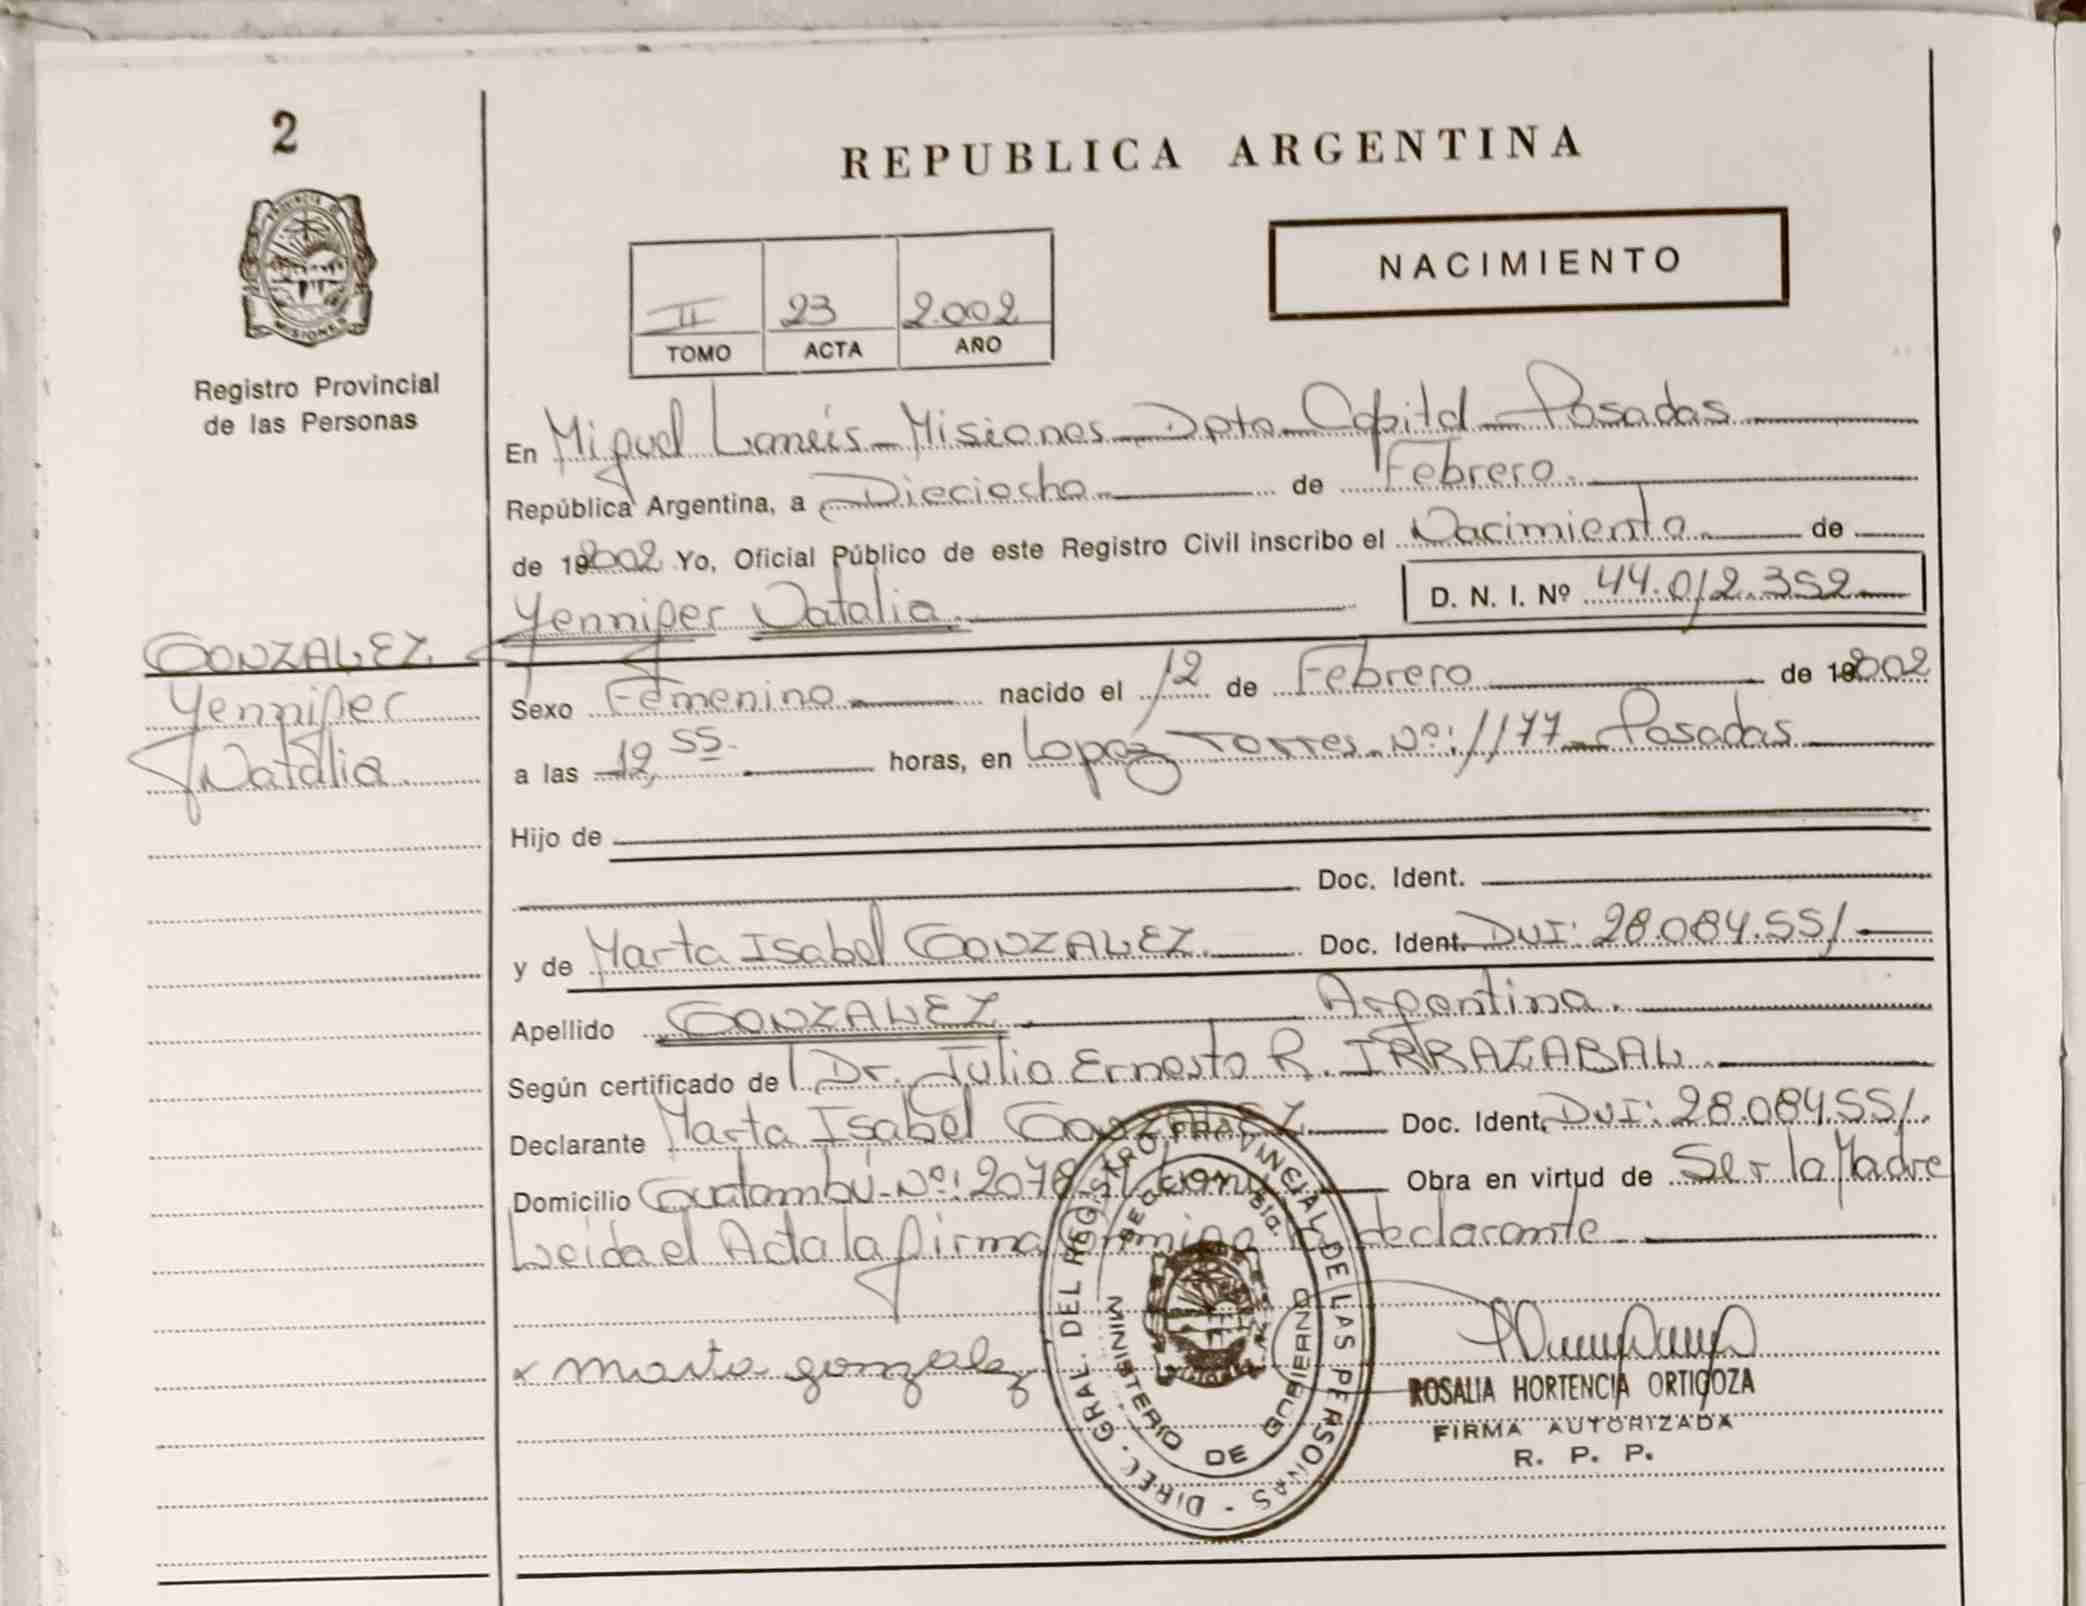 2
REPUBLICA ARGENTINA
PROVINCIA DE
MISIONES
Registro Provincial
de las Personas
NACIMIENTO
II 23 2.002
TOMO ACTA AÑO
En Miguel Lanús - Misiones - Dpto - Capital - Posadas
República Argentina, a Dieciocho de Febrero.
de 2002 Yo, Oficial Público de este Registro Civil inscribo el Nacimiento de
Yennifer Natalia. D. N. I. Nº 44.012.352
GONZALEZ
Yennifer
Natalia
Sexo Femenino nacido el 12 de Febrero de 2002
a las 12,55 horas, en Lopez Torres - Nº: 1177 - Posadas
Hijo de
Doc. Ident.
y de Marta Isabel GONZALEZ. Doc. Ident. DNI: 28.084.551
Apellido GONZALEZ Argentina.
Según certificado de Dr. Julio Ernesto R. IRRAZABAL.
Declarante Marta Isabel GONZALEZ Doc. Ident. DNI: 28.084.551.
Domicilio Guatambú - Nº: 2078 Obra en virtud de Ser la Madre
Leida el Acta la firma conmigo la declarante
x marta gonzalez
DIREC. GRAL. DEL REGISTRO PROVINCIAL DE LAS PERSONAS
MINISTERIO DE GOBIERNO
ROSALIA HORTENCIA ORTIGOZA
FIRMA AUTORIZADA
R. P. P.